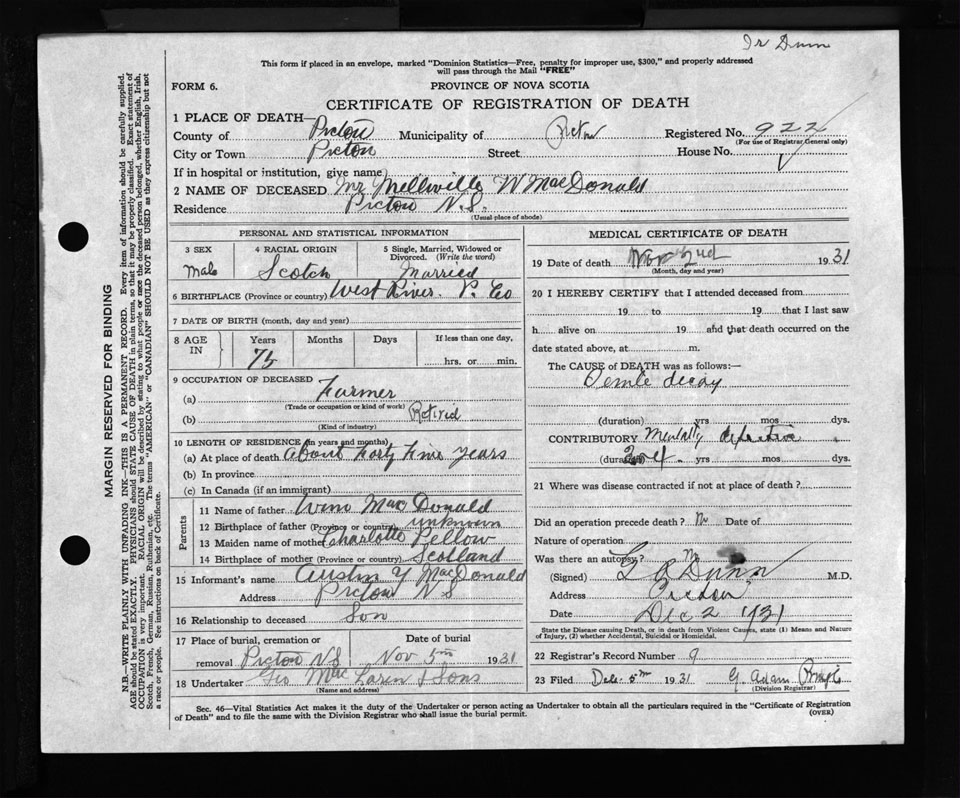 Dr Dunn
This form if placed in an envelope, marked "Dominion Statistics—Free, penalty for improper use, $300," and properly addressed
will pass through the Mail "FREE"
FORM 6.
PROVINCE OF NOVA SCOTIA
CERTIFICATE OF REGISTRATION OF DEATH
1 PLACE OF DEATH—
County of Pictou Municipality of Pictou Registered No. 922
(For use of Registrar General only)
City or Town Pictou Street House No.
If in hospital or institution, give name
2 NAME OF DECEASED Mr Mellville W MacDonald
Residence Pictou N.S.
(Usual place of abode)
PERSONAL AND STATISTICAL INFORMATION
3 SEX 4 RACIAL ORIGIN 5 Single, Married, Widowed or
Divorced. (Write the word)
Male Scotch Married
6 BIRTHPLACE (Province or country) West River. P. Co
7 DATE OF BIRTH (month, day and year)
8 AGE IN Years Months Days If less than one day,
75 hrs. or min.
9 OCCUPATION OF DECEASED
(a) Farmer
(Trade or occupation or kind of work)
(b) Retired
(Kind of industry)
10 LENGTH OF RESIDENCE (in years and months)
(a) At place of death About Forty Five years
(b) In province
(c) In Canada (if an immigrant)
Parents
11 Name of father Wm MacDonald
12 Birthplace of father (Province or country) unknown
13 Maiden name of mother Charlotte
14 Birthplace of mother (Province or country) Scotland
15 Informant's name Austin Y MacDonald
Address Pictou N S
16 Relationship to deceased Son
17 Place of burial, cremation or Date of burial
removal Pictou NS Nov 5th 1931
18 Undertaker Geo MacLaren & Sons
(Name and address)
MEDICAL CERTIFICATE OF DEATH
19 Date of death Nov 2nd 1931
(Month, day and year)
20 I HEREBY CERTIFY that I attended deceased from
19 to 19 that I last saw
h alive on 19 and that death occurred on
date stated above, at m.
The CAUSE of DEATH was as follows:—
Senile decay
(duration) yrs mos dys.
CONTRIBUTORY Mentally defective
(duration) yrs mos dys.
21 Where was disease contracted if not at place of death?
Did an operation precede death? No Date of
Nature of operation
Was there an autopsy? No
(Signed) Dunn M.D.
Address Pictou
Date Dec 2 1931
State the Disease causing Death, or in death from Violent Causes, state (1) Means and Nature
of Injury, (2) whether Accidental, Suicidal or Homicidal.
22 Registrar's Record Number 9
23 Filed Dec. 5th 1931 G. Adam
(Division Registrar)
Sec. 46—Vital Statistics Act makes it the duty of the Undertaker or person acting as Undertaker to obtain all the particulars required in the "Certificate of Registration
of Death" and to file the same with the Division Registrar who shall issue the burial permit.
(OVER)
MARGIN RESERVED FOR BINDING
N.B.—WRITE PLAINLY WITH UNFADING INK—THIS IS A PERMANENT RECORD. Every item of information should be carefully supplied.
AGE should be stated EXACTLY. PHYSICIANS should STATE CAUSE OF DEATH in plain terms, so that it may be properly classified. Exact statement of
OCCUPATION is very important. RACIAL ORIGIN will be described by stating to what people or race the deceased person belonged, whether English, Irish,
Scotch, French, German, Russian, Ruthenian, etc. The terms "AMERICAN" or "CANADIAN" SHOULD NOT BE USED as they express citizenship but not
a race or people. See instructions on back of Certificate.